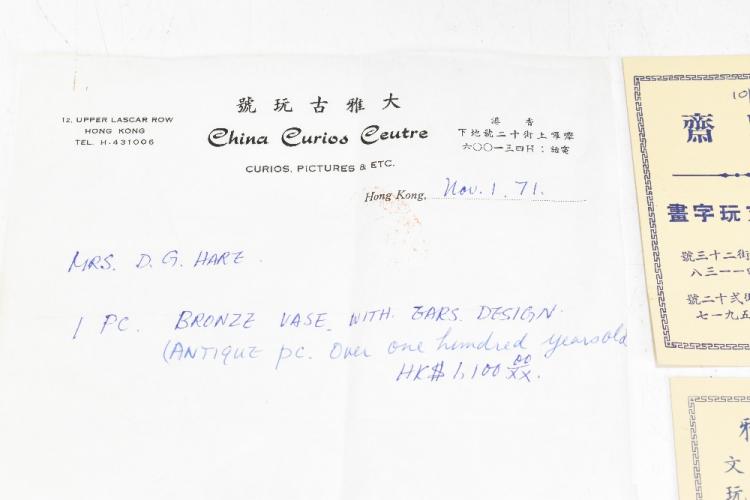 號玩古雅大
12, UPPER LASCAR ROW
HONG KONG
TEL. H-431006
China Curios Ceutre
CURIOS, PICTURES & ETC.
港香
下地號二十街上囉嚤
六〇〇一三四H：話電
Hong Kong, Nov. 1. 71.
MRS. D. G. HARE.
1 PC. BRONZE VASE WITH EARS DESIGN.
(ANTIQUE pc. Over one hundred years old
HK$ 1,100 00/XX.
10/
齋
畫字玩文
號三十二街
八三一一
號二十弍街
七一九五
雅
文
玩